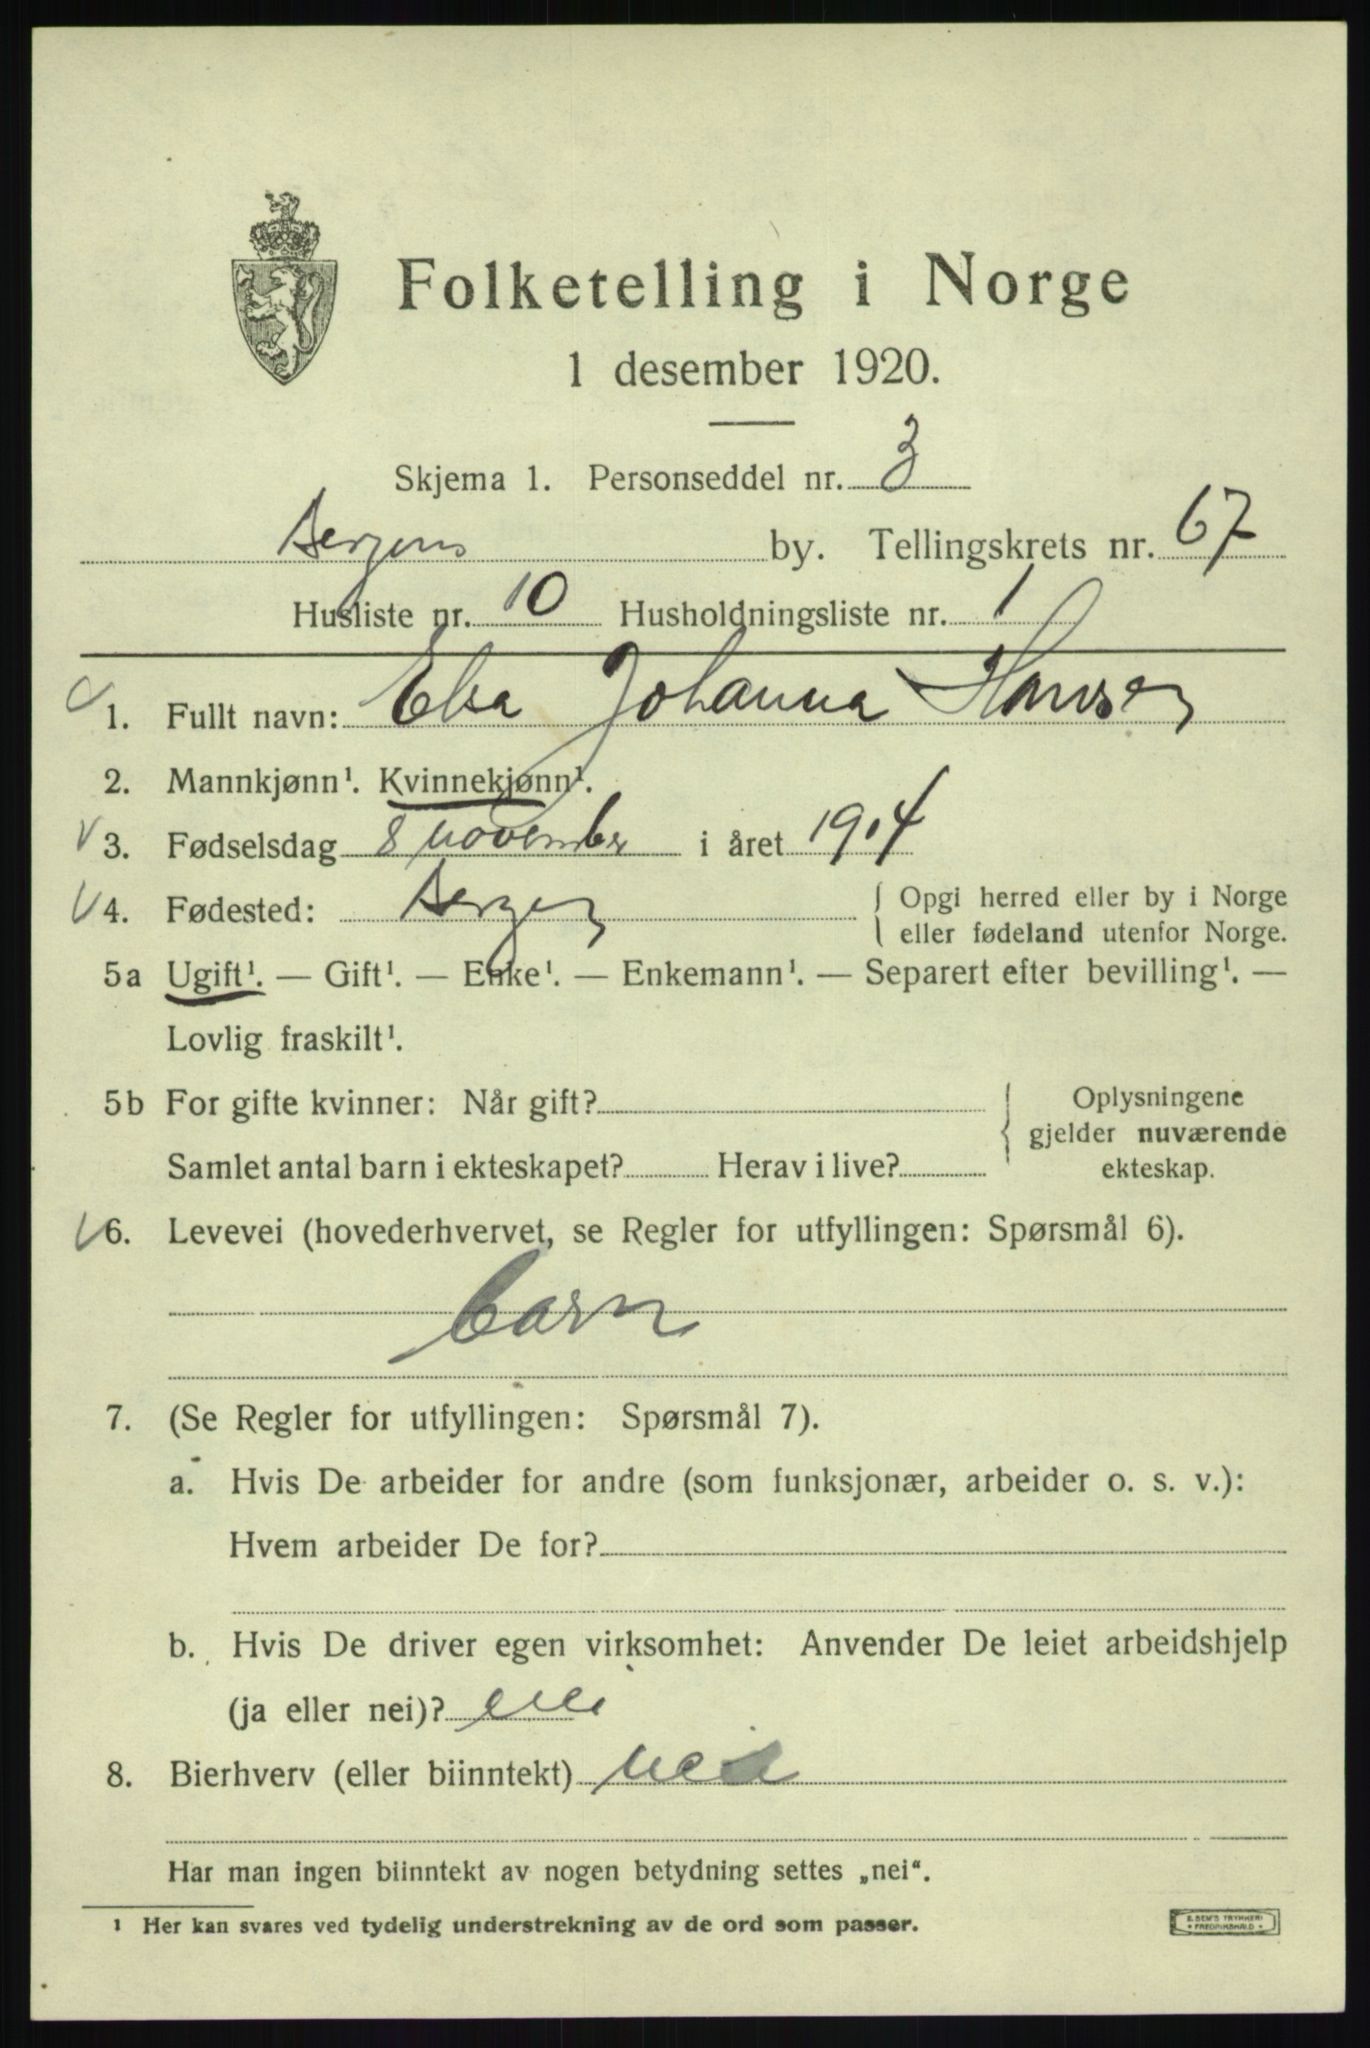 Folketelling i Norge
1 desember 1920.
Skjema 1. Personseddel nr. 3
Bergens by. Tellingskrets nr. 67
Husliste nr. 10 Husholdningsliste nr. 1
1. Fullt navn: Elsa Johanna Hansen
2. Mannkjønn¹. Kvinnekjønn¹.
3. Fødselsdag 8 november i året 1914
4. Fødested: Bergen { Opgi herred eller by i Norge
eller fødeland utenfor Norge.
5a Ugift¹. — Gift¹. — Enke¹. — Enkemann¹. — Separert efter bevilling¹. —
Lovlig fraskilt¹.
5b For gifte kvinner: Når gift? { Oplysningene
gjelder nuværende
Samlet antal barn i ekteskapet? Herav i live? ekteskap.
6. Levevei (hovederhvervet, se Regler for utfyllingen: Spørsmål 6).
barn
7. (Se Regler for utfyllingen: Spørsmål 7).
a. Hvis De arbeider for andre (som funksjonær, arbeider o. s. v.):
Hvem arbeider De for?
b. Hvis De driver egen virksomhet: Anvender De leiet arbeidshjelp
(ja eller nei)? nei
8. Bierhverv (eller biinntekt) nei
Har man ingen biinntekt av nogen betydning settes „nei“.
¹ Her kan svares ved tydelig understrekning av de ord som passer.
E. SEM'S TRYKKERI
• FREDRIKSHALD •